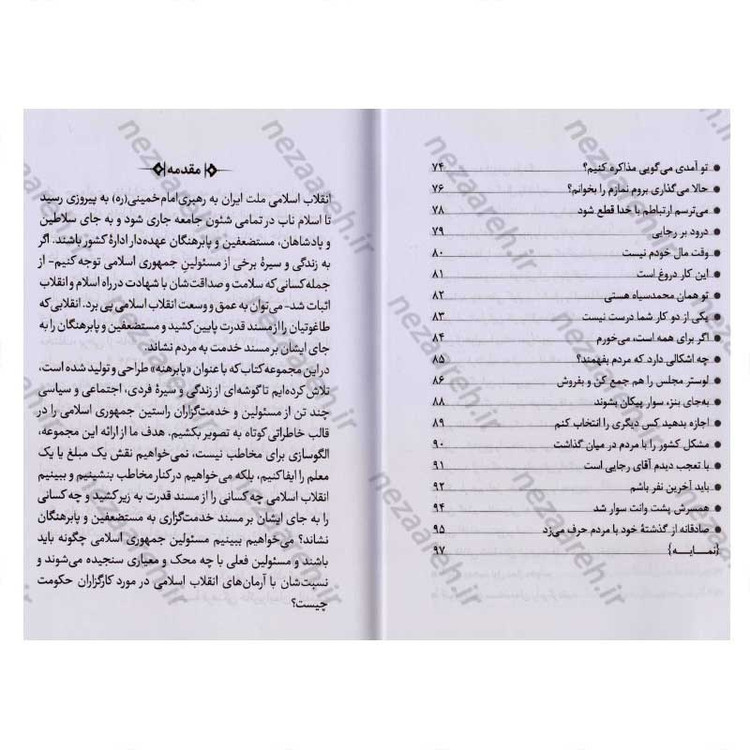 تو آمدی می‌گویی مذاکره کنیم؟ ۷۴
حالا می‌گذاری بروم نمازم را بخوانم؟ ۷۶
می‌ترسم ارتباطم با خدا قطع شود ۷۸
درود بر رجایی ۷۹
وقت مال خودم نیست ۸۰
این کار دروغ است ۸۱
تو همان محمدسیاه هستی ۸۲
یکی از دو کار شما درست نیست ۸۳
اگر برای همه است، می‌خورم ۸۴
چه اشکالی دارد که مردم بفهمند؟ ۸۵
لوستر مجلس را هم جمع کن و بفروش ۸۶
به‌جای بنز، سوار پیکان بشوند ۸۸
اجازه بدهید کس دیگری را انتخاب کنم ۸۹
مشکل کشور را با مردم در میان گذاشت ۹۰
با تعجب دیدم آقای رجایی است ۹۱
باید آخرین نفر باشم ۹۲
همسرش پشت وانت سوار شد ۹۴
صادقانه از گذشتهٔ خود با مردم حرف می‌زد ۹۵
{نمایه} ۹۷
مقدمه
انقلاب اسلامی ملت ایران به رهبری امام خمینی(ره) به پیروزی رسید
تا اسلام ناب در تمامی شئون جامعه جاری شود و به جای سلاطین
و پادشاهان، مستضعفین و پابرهنگان عهده‌دار ادارهٔ کشور باشند. اگر
به زندگی و سیرهٔ برخی از مسئولین جمهوری اسلامی توجه کنیم- از
جمله کسانی که سلامت و صداقت‌شان با شهادت در راه اسلام و انقلاب
اثبات شد- می‌توان به عمق و وسعت انقلاب اسلامی پی برد. انقلابی که
طاغوتیان را از مسند قدرت پایین کشید و مستضعفین و پابرهنگان را به
جای ایشان بر مسند خدمت به مردم نشاند.
در این مجموعه کتاب که با عنوان «پابرهنه» طراحی و تولید شده است،
تلاش کرده‌ایم تا گوشه‌ای از زندگی و سیرهٔ فردی، اجتماعی و سیاسی
چند تن از مسئولین و خدمت‌گزاران راستین جمهوری اسلامی را در
قالب خاطراتی کوتاه به تصویر بکشیم. هدف ما از ارائه این مجموعه،
الگوسازی برای مخاطب نیست، نمی‌خواهیم نقش یک مبلغ یا یک
معلم را ایفا کنیم، بلکه می‌خواهیم در کنار مخاطب بنشینیم و ببینیم
انقلاب اسلامی چه کسانی را از مسند قدرت به زیر کشید و چه کسانی
را به جای ایشان بر مسند خدمت‌گزاری به مستضعفین و پابرهنگان
نشاند؟ می‌خواهیم ببینیم مسئولین جمهوری اسلامی چگونه باید
باشند و مسئولین فعلی با چه محک و معیاری سنجیده می‌شوند و
نسبت‌شان با آرمان‌های انقلاب اسلامی در مورد کارگزاران حکومت
چیست؟
nezaareh.ir
nezaareh.ir
nezaareh.ir
nezaareh.ir
nezaareh.ir
nezaareh.ir
nezaareh.ir
nezaareh.ir